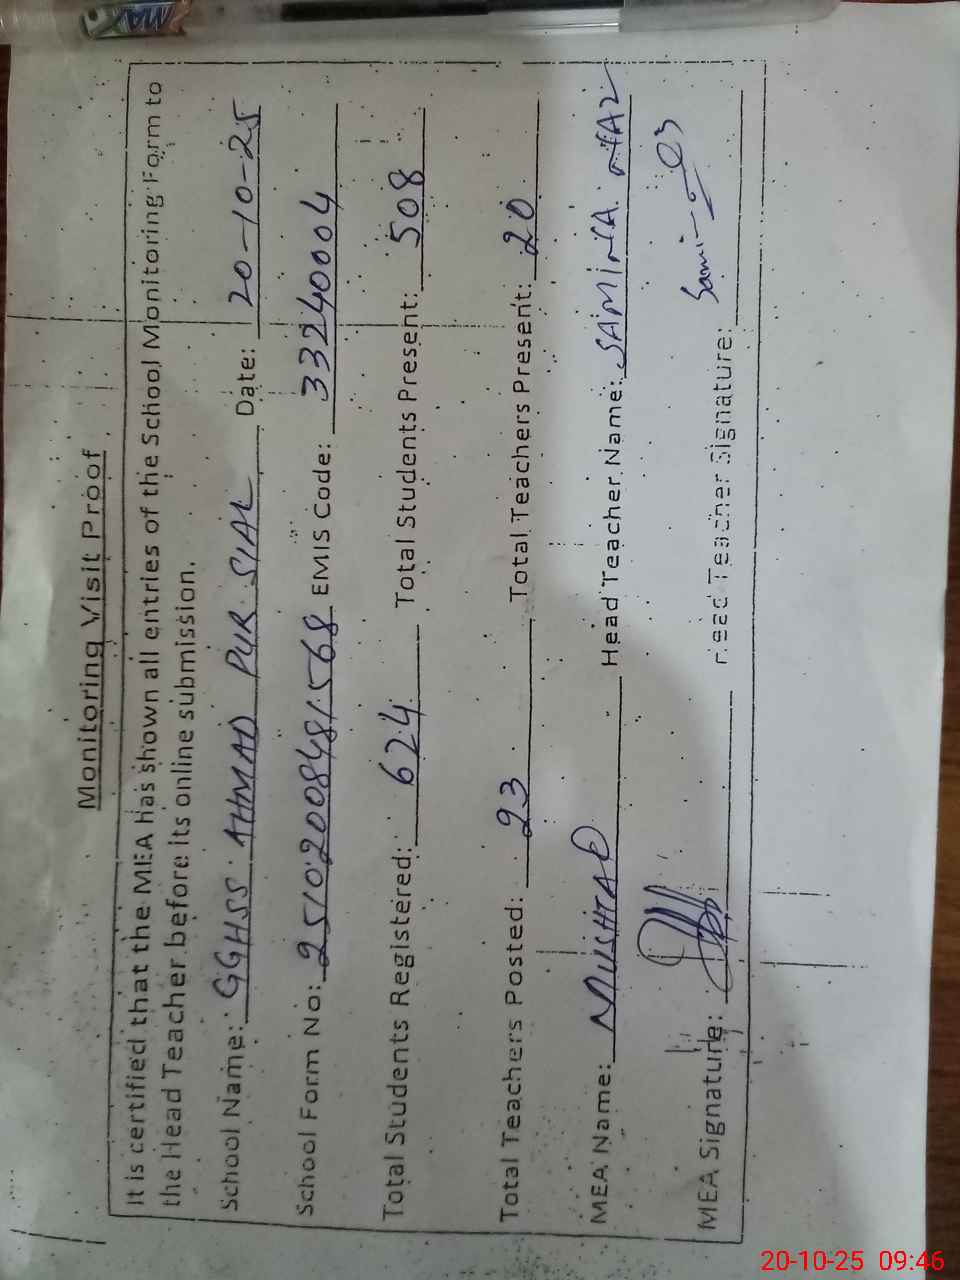 Monitoring Visit Proof
It is certified that the MEA has shown all entries of the School Monitoring Form to
the Head Teacher before its online submission.
School Name: GGHSS AHMAD PUR SIAL Date: 20-10-25
School Form No: 25102008481568 EMIS Code: 33240004
Total Students Registered: 624 Total Students Present: 508
Total Teachers Posted: 23 Total Teachers Present: 20
MEA Name: MUSHTAQ Head Teacher Name: SAMINA NAZ
MEA Signature: Head Teacher Signature:
MAX
20-10-25 09:46